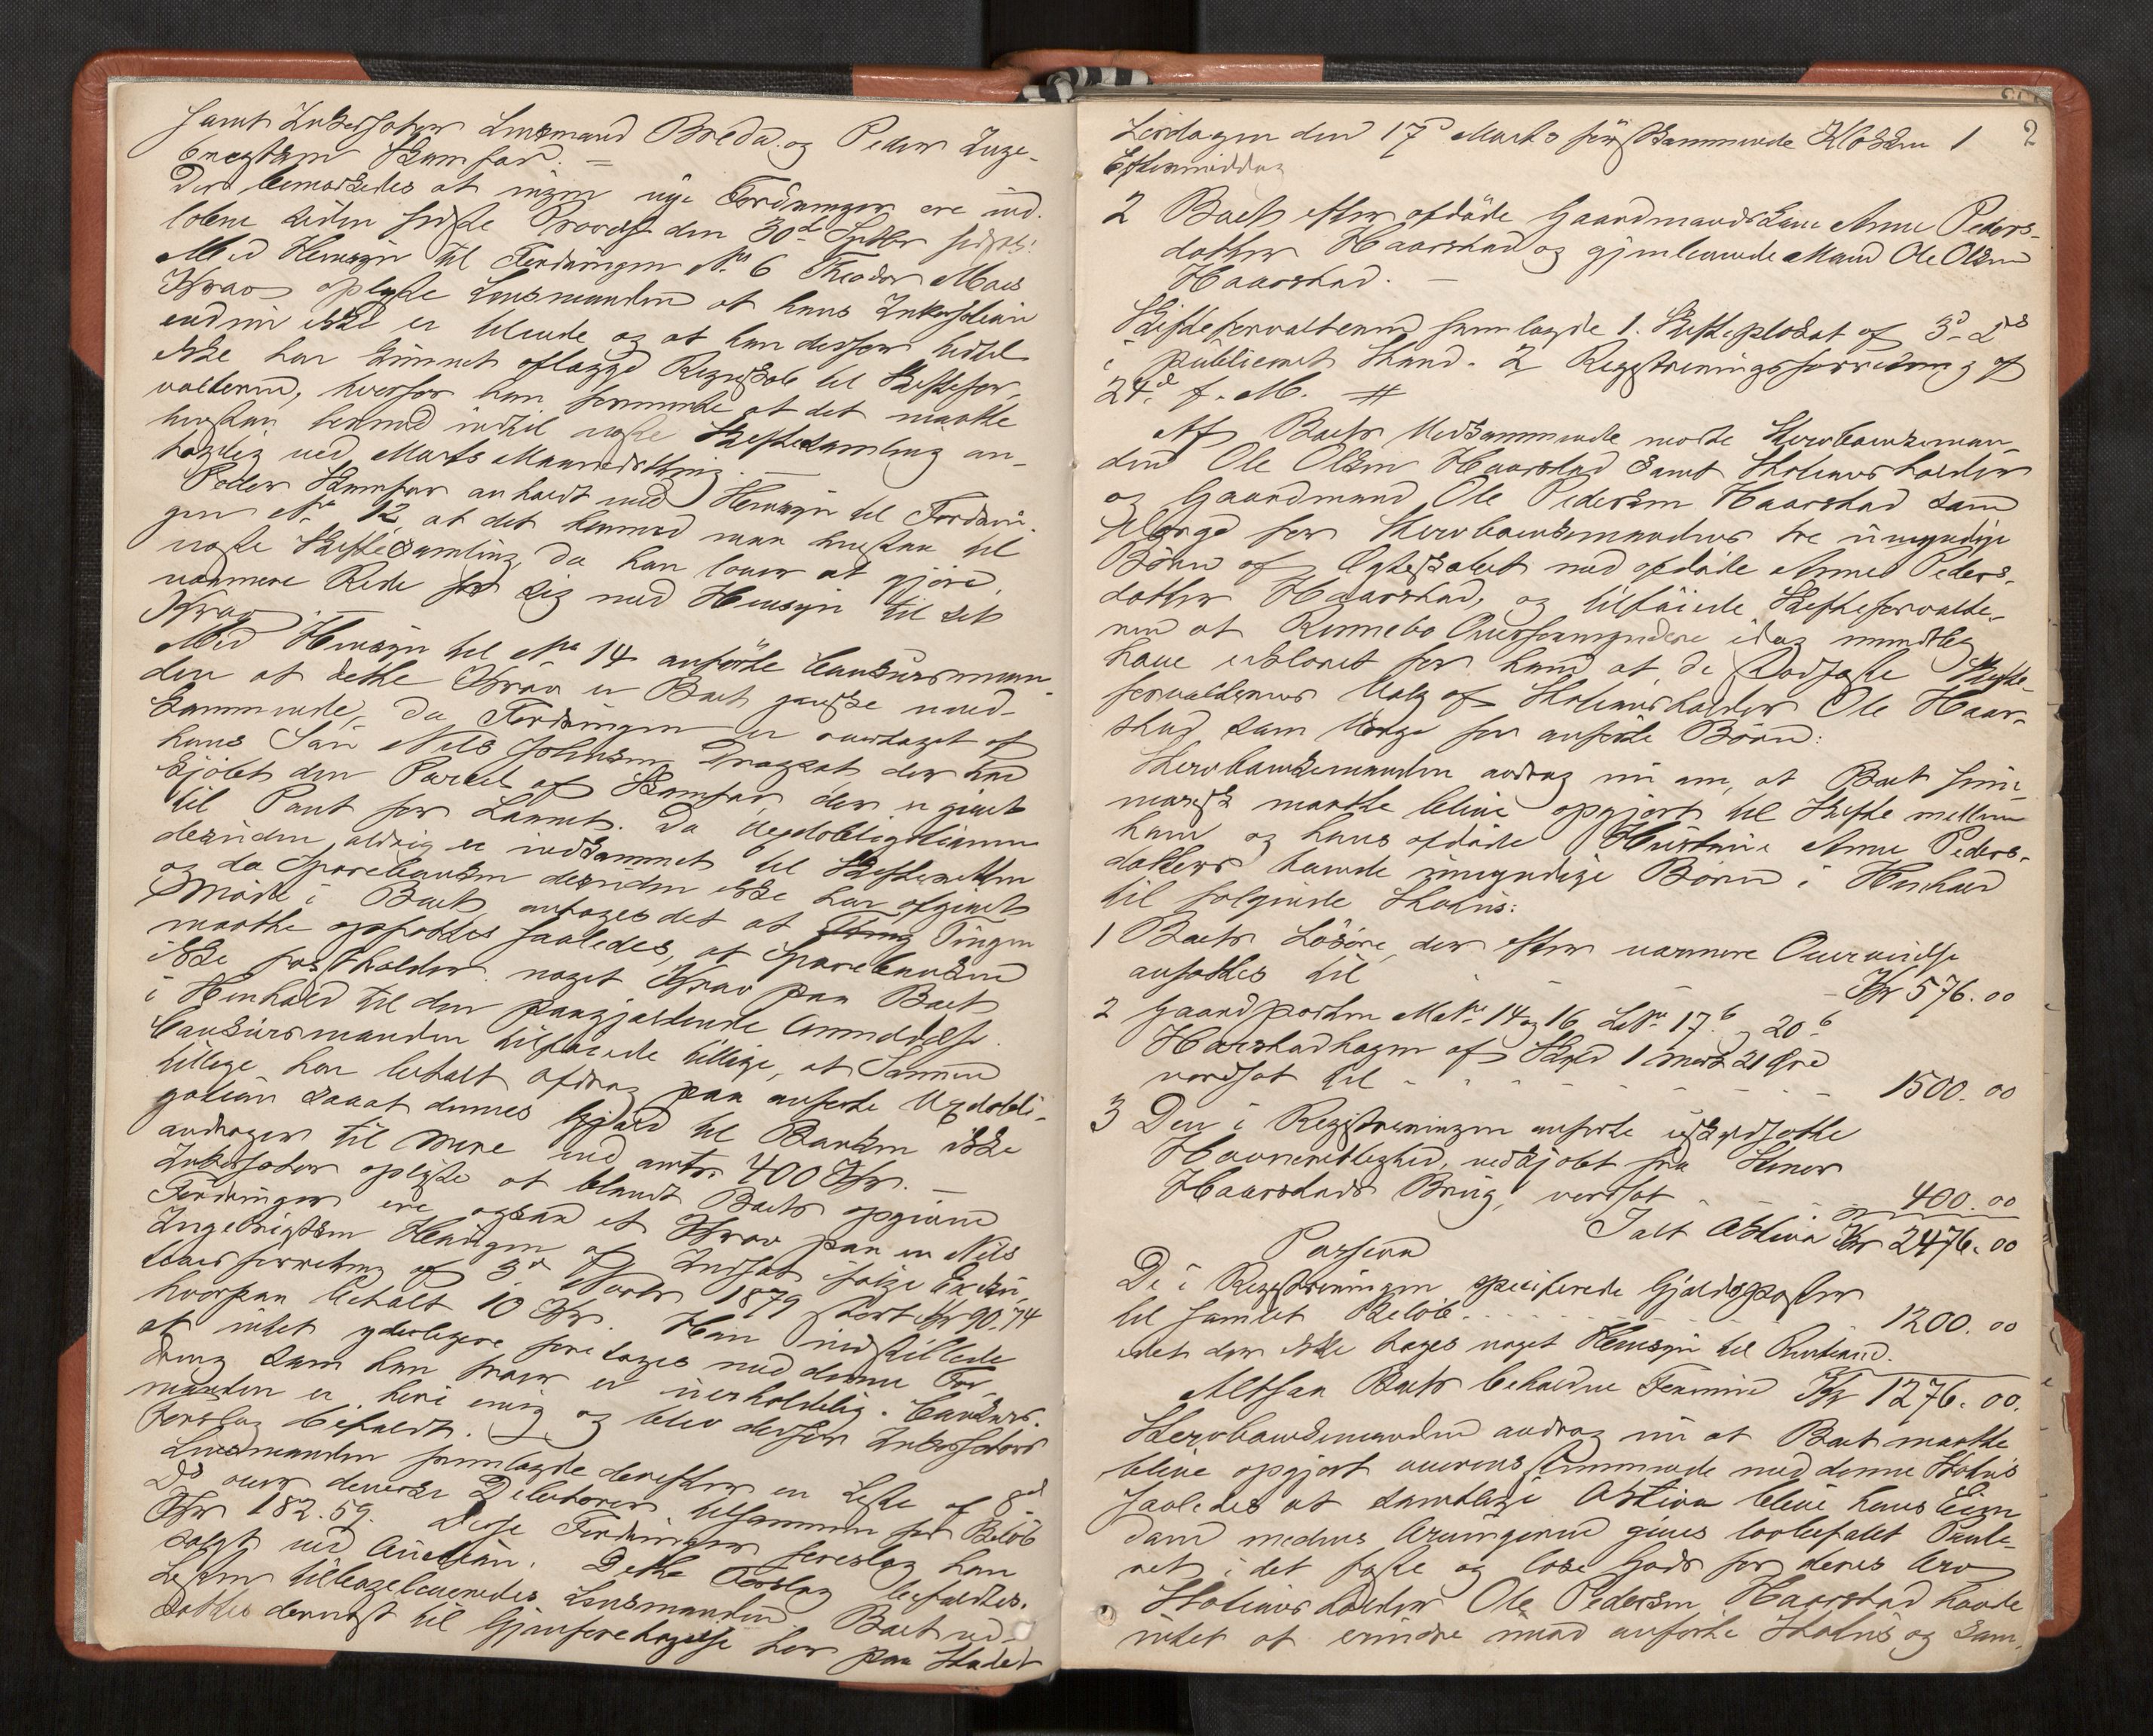 samt Inkassator Lensmand Breda og Peder Inge-
brigtsen Kamsar. =
Der bemærkedes at ingen nye Fordringer ere ind-
løbne siden sidste Proveds den 30d
Med Hensyn til Fordringen No 6 Theodor Moes
Krav oplyste Lensmanden at hans Inkassation
endnu ikke er tilende og at han derfor hidtil
ikke har kunnet aflægge Regnskab til Skiftefor-
valteren, hvorfor han formente at det maatte
henstaa hermed indtil næste Skiftesamling an-
tagelig ved Marts Maanedsthing. —
Peder Kamsar anholdt med Hensyn til Fordrin-
gen No 12, at det hermed maa henstaa til
næste Skiftesamling da han lover at gjøre
nærmere Rede for sig med Hensyn til sit
Krav. —
Med Hensyn til No 14 anførte Concursman-
den at dette Krav er Boet ganske uved-
kommende, da Fordringen er overtaget af
hans Søn Nils Johnsen der har
kjøbt den Parcel af Kamsar der er givet
til Pant for Laanet. Da Vexelobligationen
desuden aldrig er indkommet til Skifteretten
og da Sparebanken desuden ikke har afgivet
Møde i Boet antages det at Tingen
maatte opfattes saaledes, at Sparebanken
ikke fastholder noget Krav paa Boet
i Henhold til den paagjældende Anmeldelse.
Concursmanden tilføiede tillige, at Sønnen
tillige har betalt Afdrag paa anførte Vexelobli-
gation saaat dennes Gjæld til Banken ikke
andrager til mere end omtr. 400 Kr. —
Inkassator oplyste at blandt Boets opgivne
Fordringer ere ogsaa et Krav paa en Nils
Ingebrigtsen Haugen af Indsat ifølge Exeku-
tionsforretning af 3d Marts 1879 stort Kr 90.74
hvorpaa betalt 10 Kr. Han indstillede
at intet yderligere foretages med denne For-
dring som han tror er uerholdelig. Concurs-
manden er heri enig og blev derfor Inkassators
Forslag bifaldt.
Lensmanden fremlagde derefter en Liste af 8de
Ds over diverse Debitorer tilsammen for Beløb
Kr 182.59. Disse Fordringer foreslog han
solgt ved Auction. Dette Forslag bifaldtes.
Listen tilbageleveredes Lensmanden. Boet ud-
sattes dernæst til Gjenforetagelse her paa Stedet
Lørdagen den 17d Marts førstkommende Klokken 1
Eftermiddag
2
2 Boet efter afdøde Gaardmandskone Anne Peders-
datter Haarstad og gjenlevende Mand Ole Olsen
Haarstad. —
Skifteforvalteren fremlagde 1. Skifteplakat af 3d Ds
i publiceret Stand. 2 Registreringsforretning af
24d f. M. #
Af Boets Vedkommende mødte Stervboenkeman-
den Ole Olsen Haarstad samt Stolemosholder
og Gaardmand Ole Pedersen Haarstad som
Værge for Stervboenkemandens tre umyndige
Børn af Ægteskabet med afdøde Anne Peders-
datter Haarstad, og tilføiede Skifteforvalte-
ren at Rennebo Overformyndere idag mundtlig
have erklæret for ham at de Skifte-
forvalterens Valg af Ole Haar-
stad som Værge for anførte Børn.
Stervboenkemanden androg nu om, at Boet sum-
marisk maatte blive opgjort til Skifte mellem
ham og hans afdøde Hustrue Anne Peders-
datters umyndige Børn i Henhold
til følgende Status:
1 Boets Løsøre, der efter nærmere Overveielse
ansattes til - - - Kr 576.00
2 Gaardparten MNo 14 og 16 LNo 17b og 20b
Haarstadhagen af Skyld 1 mark 21 Øre
værdsat til - - - - - - 1500.00
3 Den i Registreringen anførte uskyldsatte
Havneretlighed, indkjøbt fra Stener
Haarstads Brug, værdsat - - - 400.00
Ialt Aktiva Kr 2476.00
Passiva
De i Registreringen specificerede Gjældsposter
til samlet Beløb . . . . . . 1200.00
idet der ikke tages noget Hensyn til Renterne.
Altsaa Boets beholdne Formue Kr 1276.00.
Stervboenkemanden androg nu at Boet maatte
blive opgjort overensstemmende med denne Status
saaledes at samtlige Aktiva blive hans Eien-
dom medens Arvingerne gives lovbefalet Pante-
ret i det faste og løse Gods for deres Arv
Ole Pedersen Haarstad havde
intet at erindre imod anførte Status og sam-